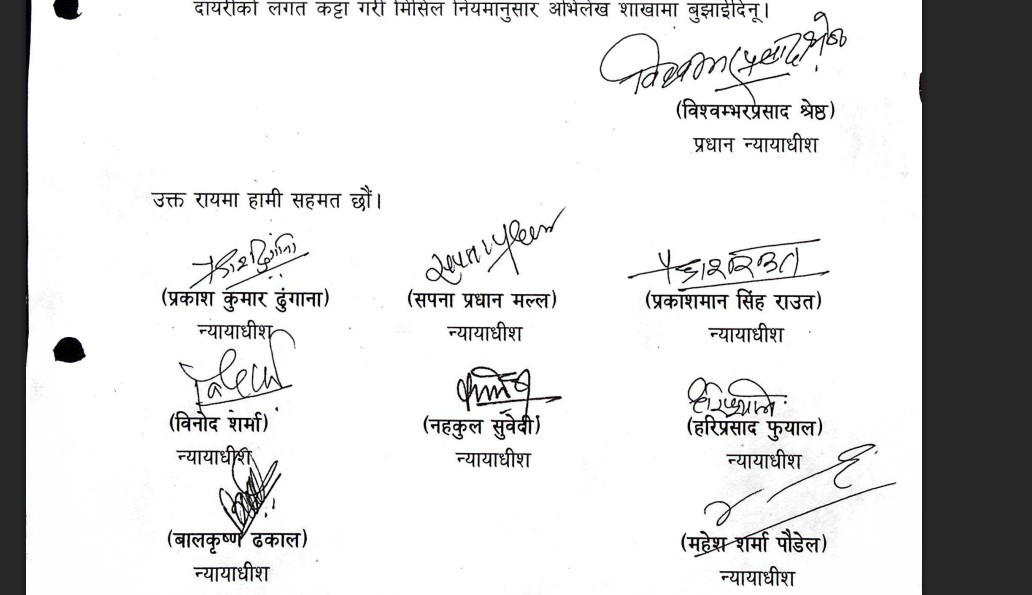 दायरीको लगत कट्टा गरी मिसिल नियमानुसार अभिलेख शाखामा बुझाईदिनू।
(विश्वम्भरप्रसाद श्रेष्ठ)
प्रधान न्यायाधीश
उक्त रायमा हामी सहमत छौं।
(प्रकाश कुमार ढुंगाना) (सपना प्रधान मल्ल) (प्रकाशमान सिंह राउत)
न्यायाधीश न्यायाधीश न्यायाधीश
(विनोद शर्मा) (नहकुल सुवेदी) (हरिप्रसाद फुयाल)
न्यायाधीश न्यायाधीश न्यायाधीश
(बालकृष्ण ढकाल) (महेश शर्मा पौडेल)
न्यायाधीश न्यायाधीश